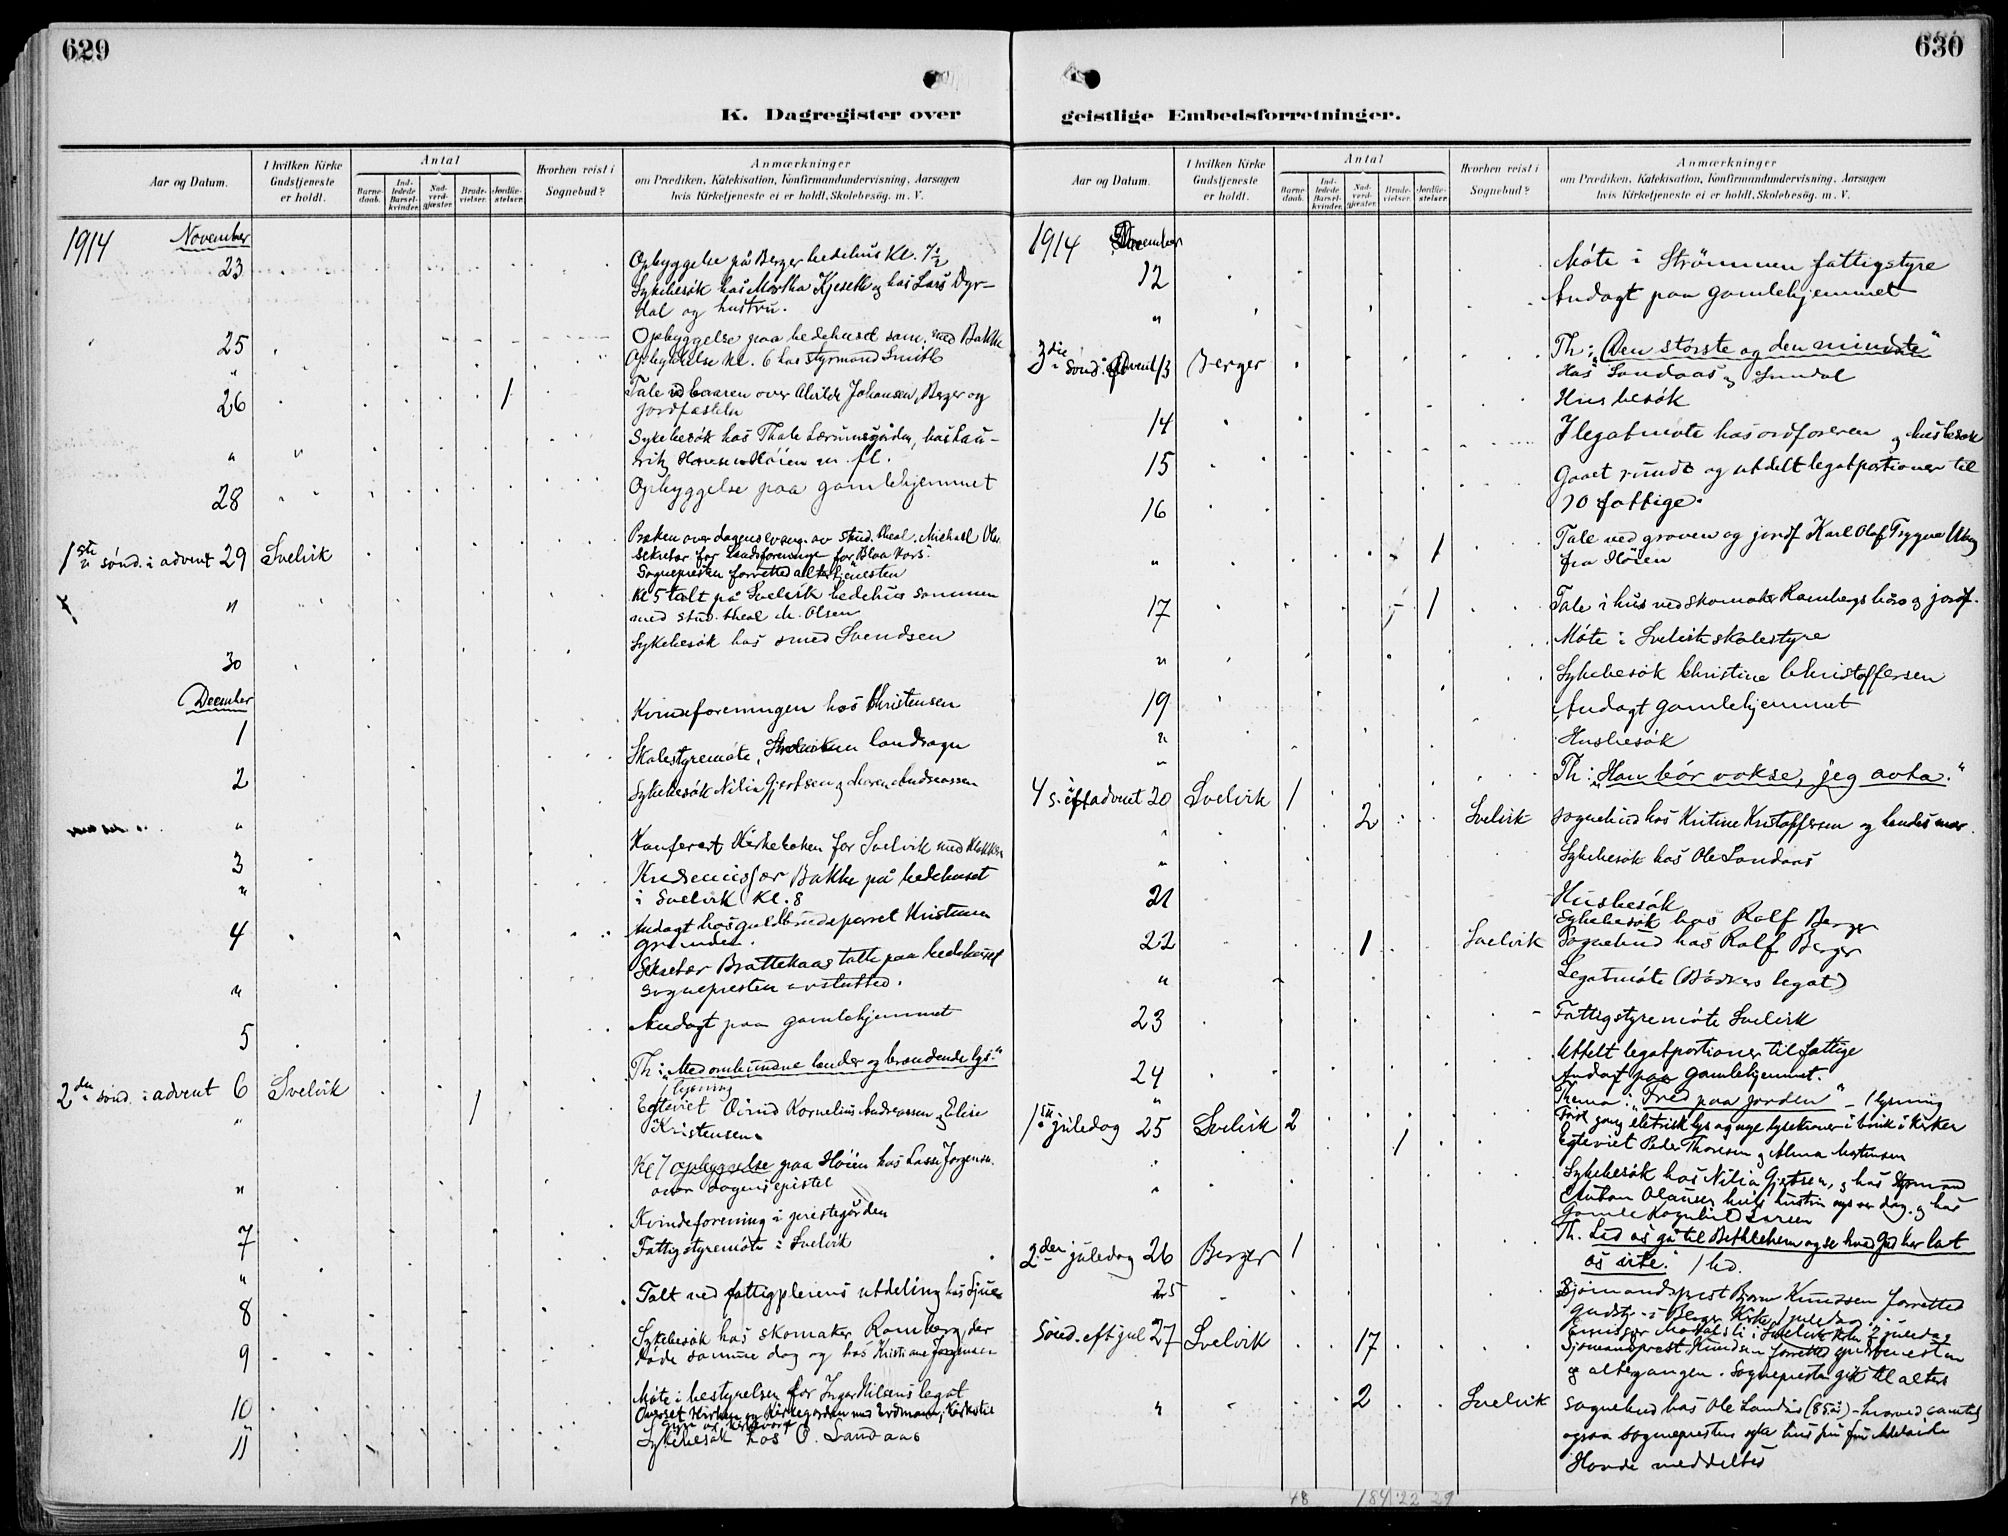 629
K. Dagregister over
Aar og Datum.
I hvilken Kirke Gudstjeneste er holdt.
Antal
Barne-daab.
Ind-ledede Barsel-kvinder.
Nad-verd-gjæster.
Brude-vielser.
Jordfæ-stelser.
Hvorhen reist i Sognebud?
Anmærkninger
om Prædiken, Katekisation, Konfirmandundervisning, Aarsagen
hvis Kirketjeneste ei er holdt, Skolebesøg. m. V.
1914 November
23 Opbyggelse på Berger bedehus Kl. 7½
Sykebesök hos Martha Kjeseth og hos Lars Dyr-
dal og hustru.
25 Opbyggelse paa bedehuset sam. med Bakke
" Opbyggelse Kl. 6 hos styrmand Smith
26 1 Tale ved baaren over Alvilde Johansen, Berger og
jordfæstelse
" Sykebesök hos Thale Lærumsgården, hos Lau-
ritz Höien m. fl.
28 Opbyggelse paa gamlehjemmet
1ste sönd. i advent 29 Svelvik Præken over dagens evang. av stud. theol. Michael Ols.
Sekretær for Landsforeninge for Blaa Kors
Sognepresten forrettet altertjenesten
" Kl 5 talt på Svelvik bedehus sammen
med stud. theol M. Olsen
30 Sykebesök hos smed Svendsen
December
1 Kvindeforeningen hos Christensen
2 Skolestyremöte, landsogn
" Sykebesök Nilia Gjertsen og Andreassen
3 Konferert Kirkeboken for Svelvik med Klokker
" Bakke på bedehuset
i Svelvik Kl. 8
4 Andagt hos guldbrudeparret Kristensen
Grunden.
" Sekretær Brattekaas talte paa bedehuset
Sognepresten avslutted.
5 Andagt paa gamlehjemmet
2den sönd. i advent 6 Svelvik Th: "Med ombundne lender og brændende lys."
1 lysning
" 1 Egteviet Eivind Kornelius Andreassen og Elise
Kristensen.
" Kl 7 opbyggelse paa Höien hos Lasse Jörgensen
over dagens epistel
7 Kvindeforening i prestegården
" Fattigstyremöte i Svelvik
8 Talt ved fattigpleiens utdeling hos
9 Sykebesök hos skomaker Ramberg, der
döde samme dag og hos Kristiane Jörgensen
10 Möte i bestyrelsen for Inger Nilsens legat
Overset Kirken og Kirkegården med
11 Sykebesök hos O. Sandaas
630
geistlige Embedsforretninger.
Aar og Datum.
I hvilken Kirke Gudstjeneste er holdt.
Antal
Barne-daab.
Ind-ledede Barsel-kvinder.
Nad-verd-gjæster.
Brude-vielser.
Jordfæ-stelser.
Hvorhen reist i Sognebud?
Anmærkninger
om Prædiken, Katekisation, Konfirmandundervisning, Aarsagen
hvis Kirketjeneste ei er holdt, Skolebesög. m. V.
1914 December
12 Möte i Strömmen fattigstyre
" Andagt paa gamlehjemmet
3die sönd. i advent 13 Berger Th: "Den störste og den mindste"
Hos Sandaas og Sundal
14 Husbesök
15 I legatmöte hos ordföreren og husbesök
16 Gaaet rundt og utdelt legatportioner til
70 fattige.
" 1 Tale ved graven og jordf Karl Olaf Trygve
fra Höien
17 1 Tale i hus ved skomaker Rambergs båre og jordf.
" Möte i Svelvik skolestyre
19 Sykebesök Christine Christoffersen
" Andagt gamlehjemmet
" Husbesök
4 s. i advent 20 Svelvik 1 Th: "Han bör vokse, jeg avta."
" 2 Svelvik Sognebud hos Kristine Kristoffersen og hendes mor.
" Sykebesök hos Ole Sandaas
21 Husbesök
Sykebesök hos Rolf Berger
22 1 Svelvik Sognebud hos Rolf Berger
" Legatmöte (Bödkers legat)
23 Fattigstyremöte Svelvik
24 Uttelt legatportioner til fattige
" Andagt paa gamlehjemmet.
1ste juledag 25 Svelvik 2 Thema: "Fred paa jorden" - 1 lysning
Förste gang elektrisk lys og nye lysekroner i bruk i kirken
" 1 Egteviet Peder Thoresen og Alma Mortensen
" Sykebesök hos Nilia Gjertsen, og hos Styrmand
Olausen hvis hustru og hos
Gamle Larsen
2den juledag 26 Berger 1 Th. Lad os gå til Bethlehem og se hvad Gud har lat
os vite." 1 lys.
25 Sjömandsprest Knudsen forrettet
gudstj. i Berger Kirke 1 juledag
i Svelvik Kirke 2 juledag
Sönd. eft jul 27 Svelvik 17 Sjömandsprest Knudsen forrettet gudstjenesten
og altergangen. Sognepresten gik til alters
" 2 Svelvik Sognebud hos Ole (85 år) - hvorved samtidig
ogsaa sognepresten
meddeltes
48 184 22 29